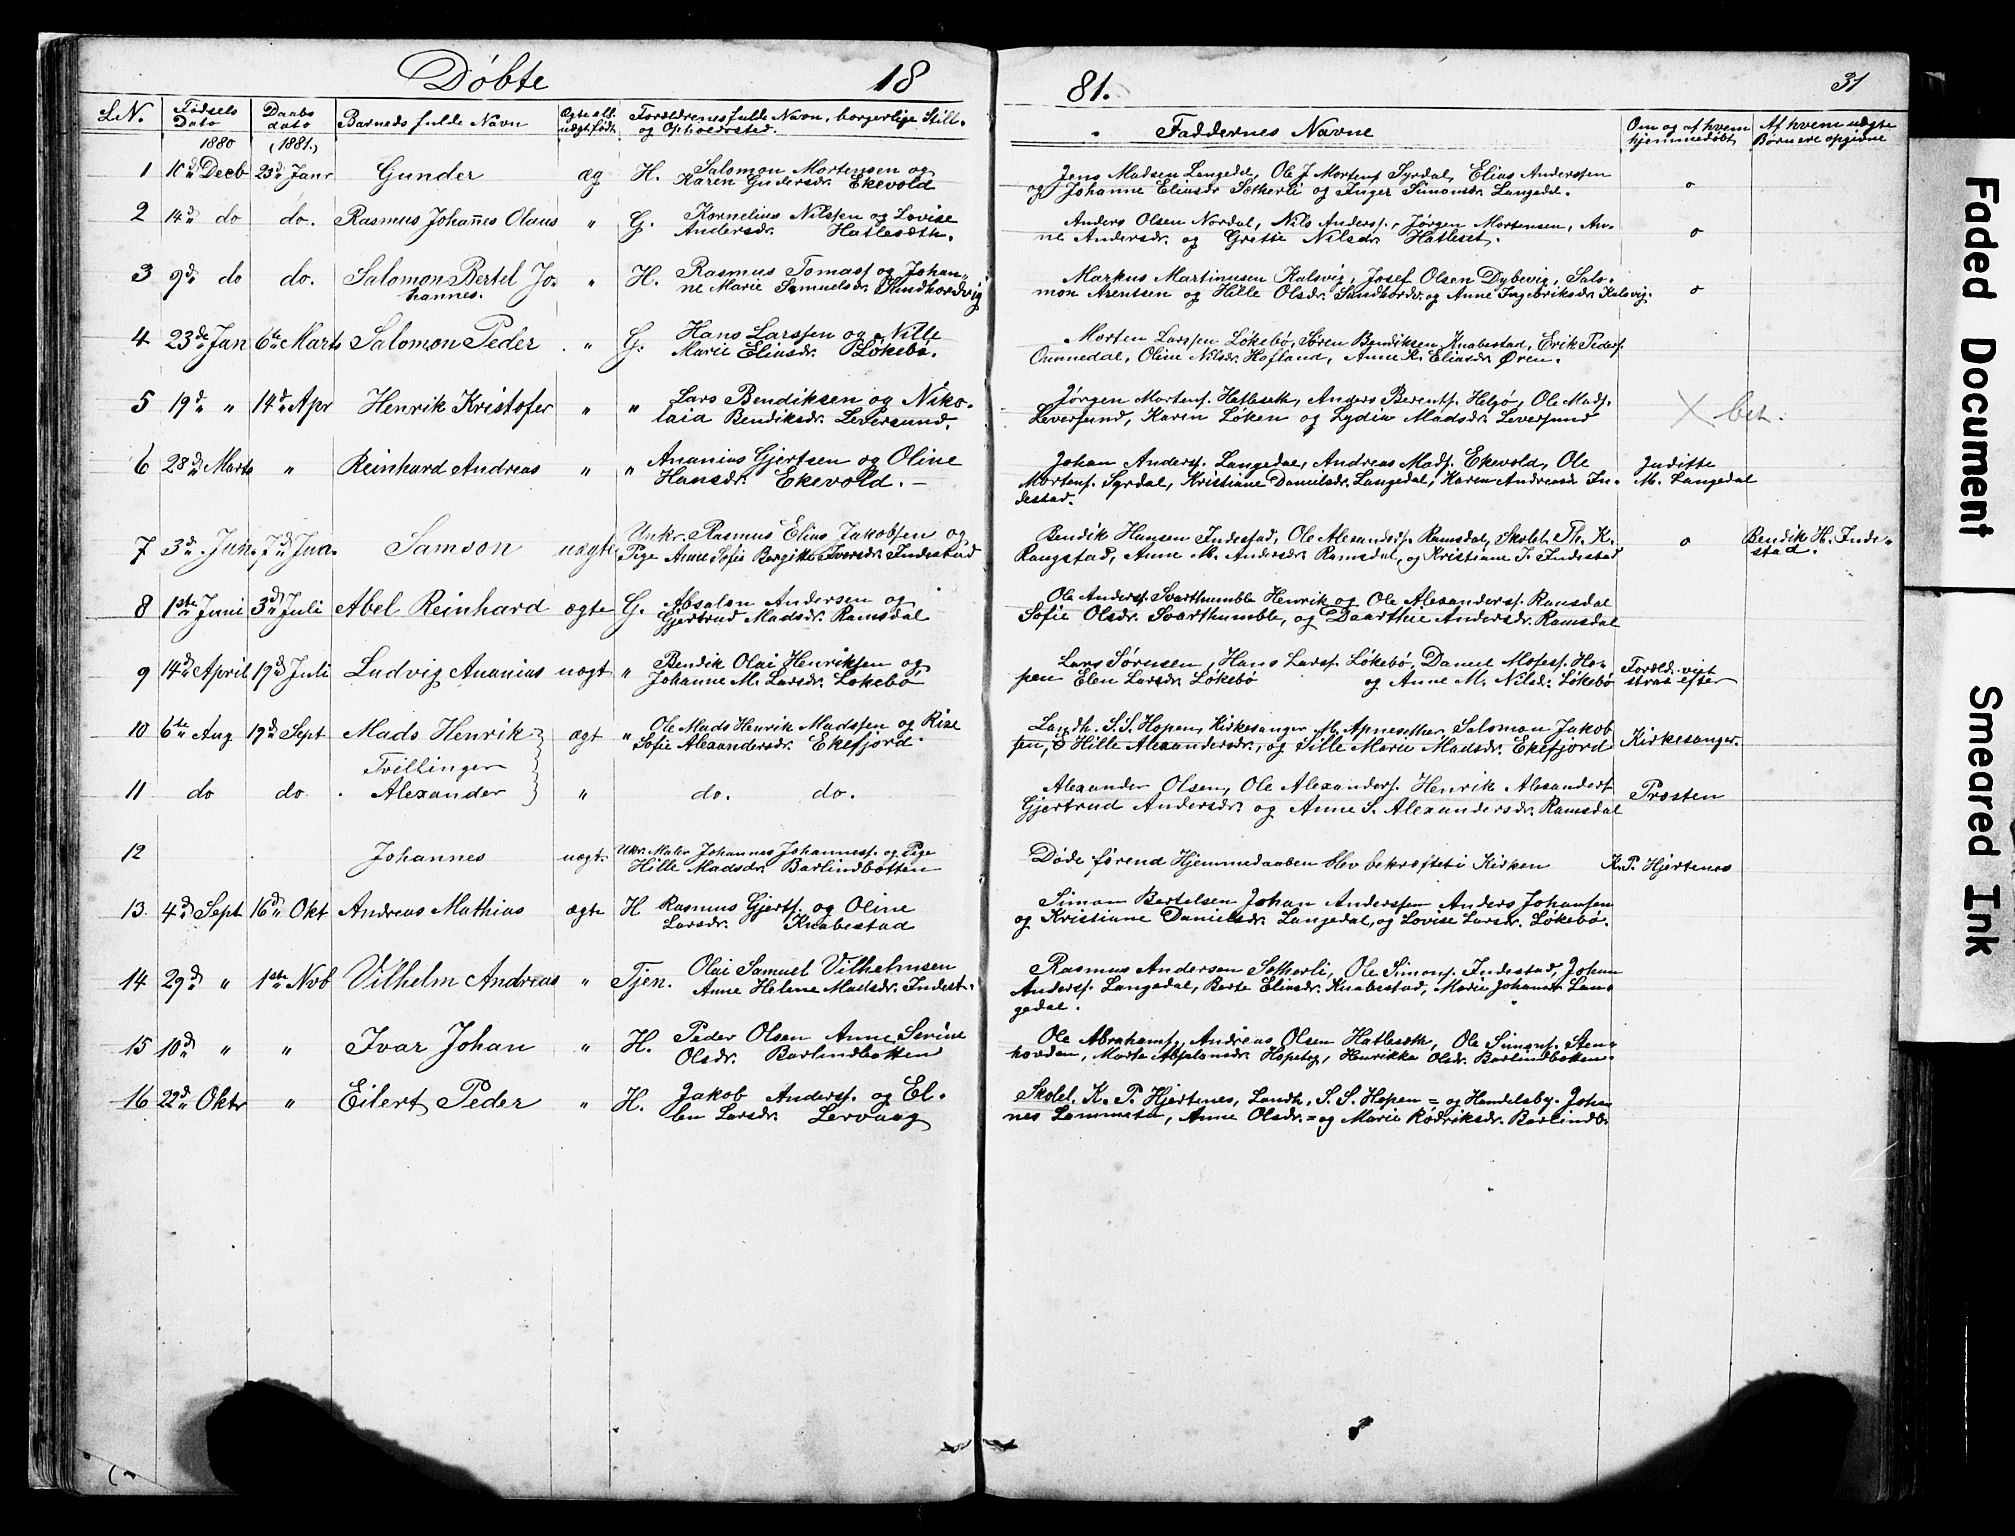 Døbte 1881. 31
L.N. Fødsels Dato 1880 Daabs dato (1881.) Barnets fulde Navn Ægte ell. uægt. født. Forældrenes fulde Navn, borgerlige Still. og Opholdssted. Faddernes Navne Om og af hvem hjemmedøbt Af hvem uægte Børn ere opgivne
1 10de Decb 23de Janr Gunder æg H. Salomon Mortensen og
Karen Gundersdr. Ekevold
Jens Madsen Langedal, Ole J. Mortens. Syrdal, Elias Anderssen
og Johanne Eliasdr Sætherli og Inger Simonsdr. Langedal. o
2 14de do do. Rasmus Johannes Olaus " G. Kornelius Nilssen og Lovise
Andersdr. Hatlesæth.
Anders Olsen Nordal, Nils Anderss., Jørgen Mortensen, An-
ne Andersdr. og Grette Nilsdr. Hatleset. o
3 9de do do. Salomon Bertel Jo-
hannes. " H. Rasmus Tomass. og Johan-
ne Marie Samuelsdr. Sandhordvig
Markus Martinusen Kalsvig, Josef Olsen Dybevig, Salo-
mon Arentsen og Hille Olsdr. Sandhordv. og Anne Ingebriksdr. Kalsvig. o
4 23de Jan 6te Marts Salomon Peder " G. Hans Larssen og Nille
Marie Eliasdr. Løkebø.
Morten Larssen Løkebø, Søren Bendiksen Knabestad, Erik Peders.
Onnedal, Oline Nilsdr. Hofland, Anne K. Eliasdr. Øren.
5 19de " 14de Apr Henrik Kristofer " " Lars Bendiksen og Niko-
laia Bendiksdr. Leversund.
Jørgen Mortens. Hatleseth, Anders Berents. Helgø, Ole Mads.
Leversund, Karen Løken og Lydia Madsdr. Leversund
X bet.
6 28de Marts " Reinhard Andreas " " Ananias Gjertsen og Oline
Hansdr. Ekevold. –
Johan Anderss. Langedal, Andreas Mads. Ekevold, Ole
Mortens. Syrdal, Kristiane Danielsdr. Langedal, Karen Andreasdr. In-
destad.
Juditte
M. Langedal
7 3de Jun. 7de Jua. Samson uægte Unkr. Rasmus Elias Jakobsen og
Pige Anne Sofie Bergitte Iversdr. Indestad
Bendik Hansen Indestad, Ole Alexanders. Ramsdal, Skolel. Th. K.
Rangstad, Anne M. Andersdr. Ramsdal, og Kristiane I. Indestad
o Bendik H. Inde-
stad.
8 1ste Juni 3de Juli Abel Reinhard ægte G. Absalon Andersen og
Gjertrud Madsdr. Ramsdal
Ole Anderss. Svarthumble Henrik og Ole Alexanderss. Ramsdal
Sofie Olsdr. Svarthumble, og Daarthie Andersdr. Ramsdal
9 14de April 19de Juli Ludvig Ananias uægt " Bendik Olai Henriksen og
Johanne M. Larsdr. Løkebø
Lars Sørensen, Hans Larss. Løkebø, Daniel Moses. Ho-
pen Elen Larsdr Løkebø og Anne M. Nilsdr. Løkebø
Foræld. viet
strax efter
10 6te Aug 19de Sept Mads Henrik ægt " Ole Mads Henrik Madssen og Rise
Sofie Alexandersdr. Ekefjord.
Landh. S.S. Hopen, Kirkesanger M. Apnesether Salomon Jakob
sen, Hille Alexandersdr., og Sille Marie Madsdr. Ekefjord
Kirkesanger.
Tvillinger
11 do do. Alexander " do. do.
Alexander Olsen, Ole Alexanders. Henrik Alexanders.
Gjertrud Andersdr. og Anne S. Alexandersdr. Ramsdal
Prosten
12 Johannes uægt. Ukr. Maler Johannes Johanness. og Pige
Hille Madsdr. Barlindbotten
Døde førend Hjemmedaaben blev bekræftet i Kirken K. P. Hjertenes
13. 4de Sept 16de Okt Andreas Mathias ægte H Rasmus Gjerts. og Oline
Larsdr. Knabestad
Simon Bertelsen Johan Anderssen Anders Johansen
og Kristiane Danielsdr. Langedal, og Lovise Larsdr. Løkebø.
14 29de " 1ste Nob Vilhelm Andreas " Tjen. Olai Samuel Vilhelmsen
Anne Helene Madsdr. Indest.
Rasmus Andersen Setherli, Ole Simons. Indestad, Johan
Anderss. Langedal, Berte Eliasdr. Knabestad, Marie Johansdr Lan-
gedal.
15 10de " " Ivar Johan " H. Peder Olsen Anne Serine
Olsdr. Barlindbotten
Ole Abrahams., Andreas Olsen Hatleseth, Ole Simons. Sten-
hovden, Marta Absalonsdr. Hopsteg, Henrikka Olsdr. Barlindbotten.
16 22de Oktr " Eilert Peder " H. Jakob Anderss. og El-
len Larsdr. Lervaag
Skolel. K. P. Hjertenes, Landh. S. S. Hopen = og Handelsby. Johan
nes Lammetu, Anne Olsdr. = og Marie Rødriksdr. Barlindb.
Faded Document
Smeared Ink